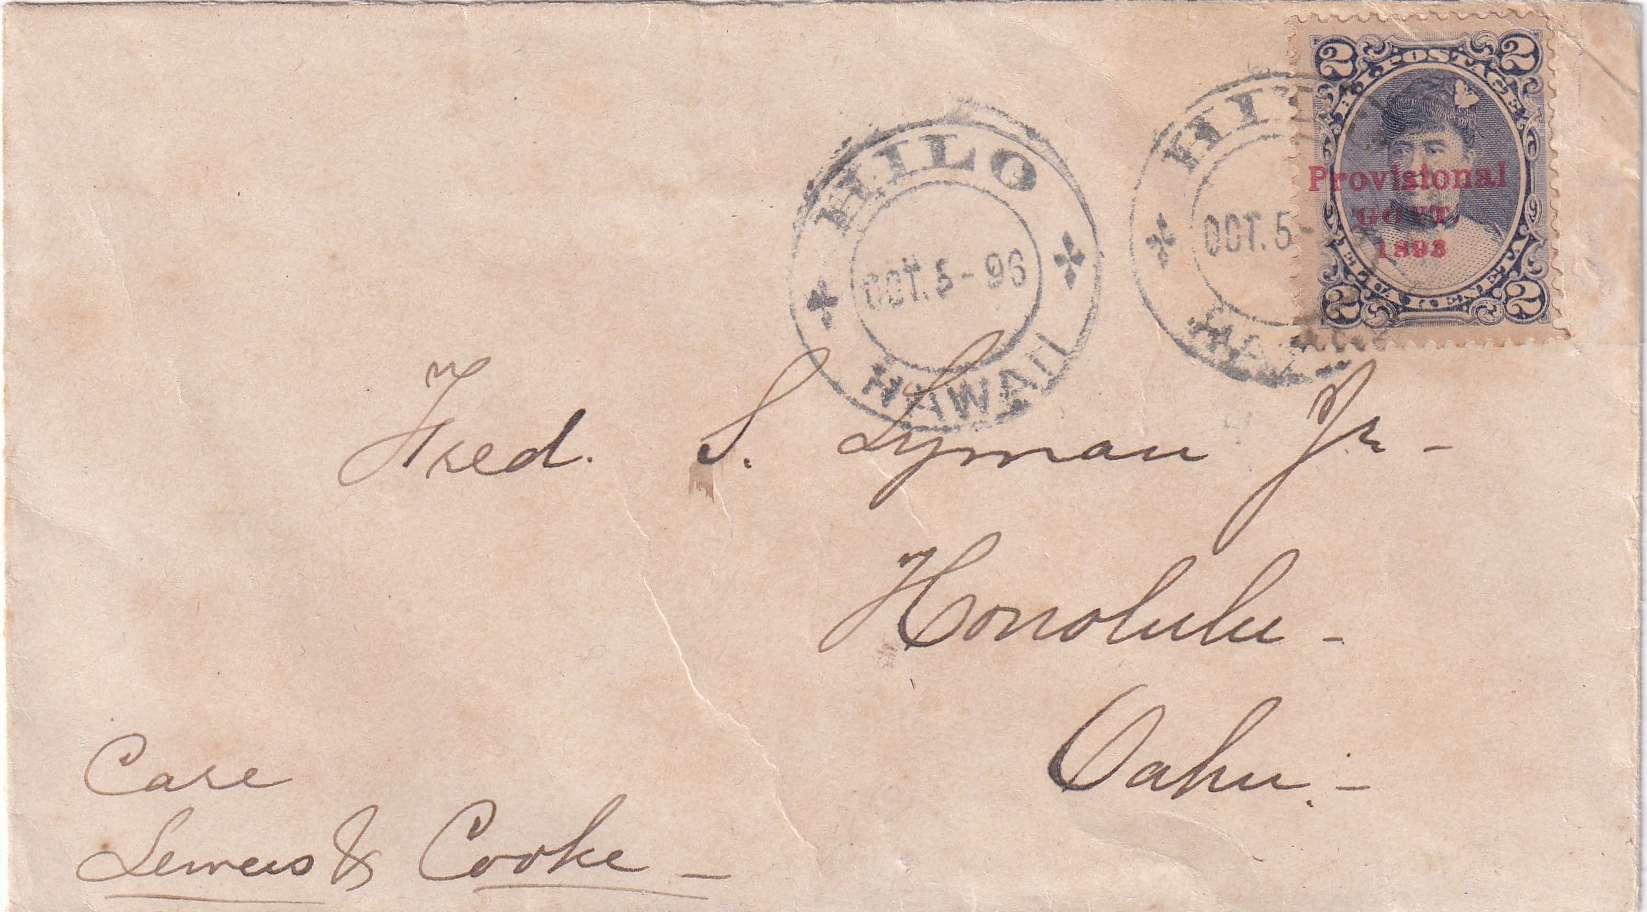 HILO
OCT. 5-96
HAWAII
HIL
OCT. 5-
HA
2 2
POSTAGE
Provisional
GOVT.
1893
2 2
Fred. S. Lyman Jr -
Honolulu -
Oahu. -
Care
Lewers & Cooke -